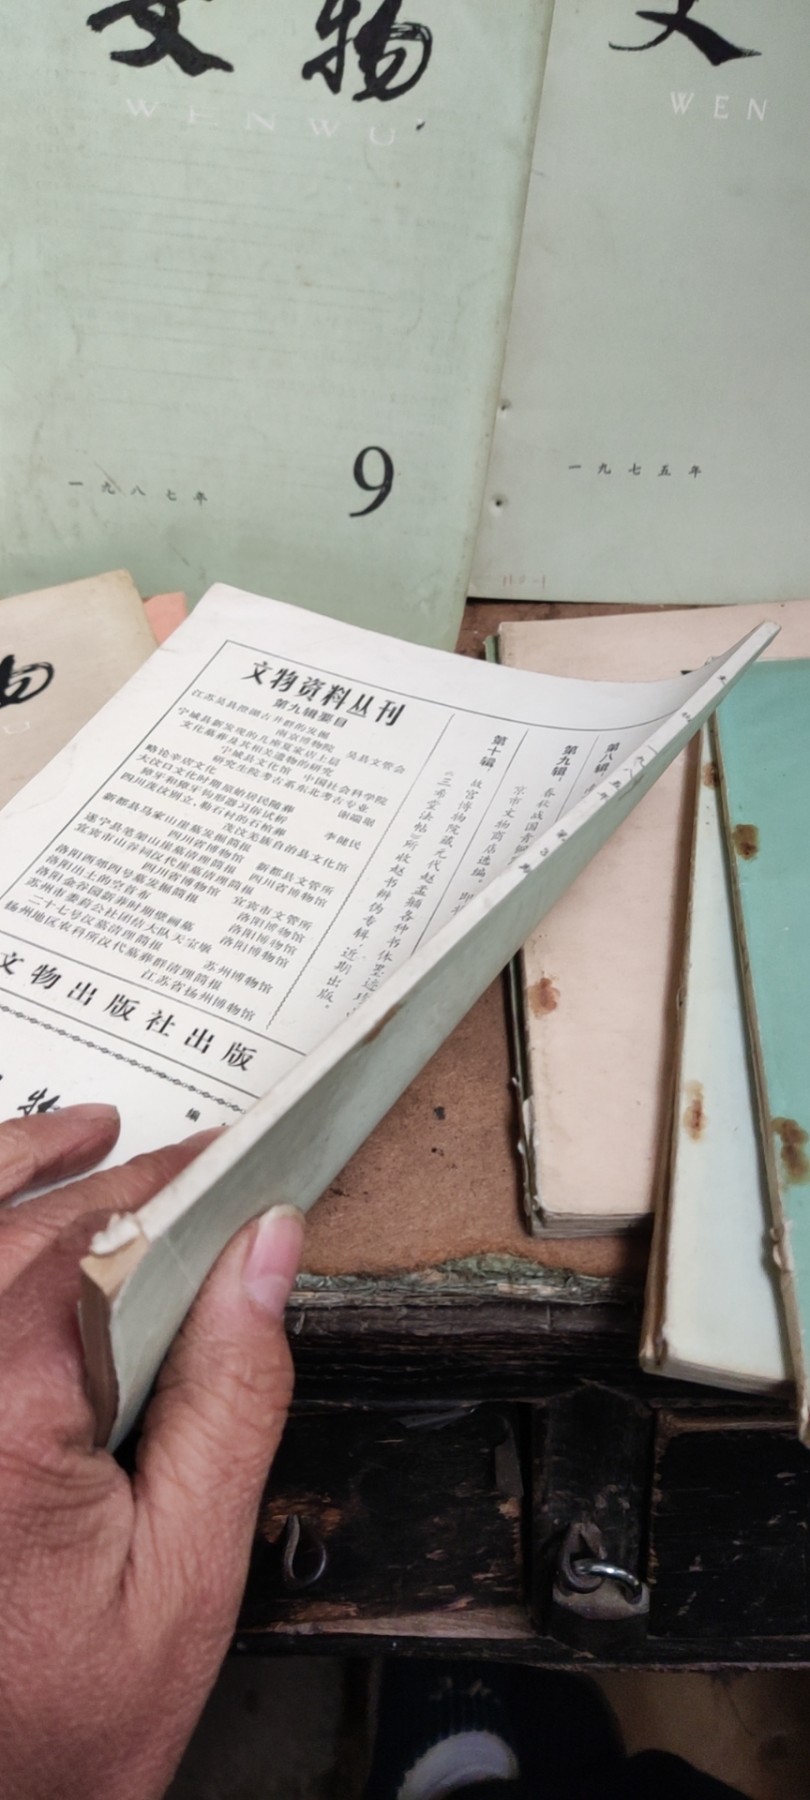 文物
WENWU
一九八七年
9
文
WEN
一九七五年
物
文物资料丛刊
第九辑要目
江苏吴县澄湖古井群的发掘
南京博物院 吴县文管会
宁城县新发现的几座夏家店上层
文化墓葬及其相关遗物的研究
宁城县文化馆 中国社会科学院
研究生院考古系东北考古专业
略论辛店文化 谢端琚
大汶口文化时期原始居民随葬
獐牙和獐牙钩形器习俗试析 李健民
四川茂汶别立、勒石村的石棺葬
茂汶羌族自治县文化馆
新都县马家山崖墓发掘简报
四川省博物馆 新都县文管所
遂宁县笔架山崖墓清理简报 四川省博物馆
宜宾市山谷祠汉代崖墓清理简报
四川省博物馆 宜宾市文管所
洛阳西郊四号墓发掘简报 洛阳博物馆
洛阳出土的空首布 洛阳博物馆
洛阳金谷园新莽时期壁画墓 洛阳博物馆
苏州市娄葑公社团结大队天宝墩
二十七号汉墓清理简报 苏州博物馆
扬州地区农科所汉代墓群清理简报
江苏省扬州博物馆
文物出版社出版
第八辑
第九辑，春秋战国青铜
京市文物商店选编。
第十辑，故宫博物院藏元代赵孟頫各种书体墨迹
《三希堂法帖》所收赵书辨伪专辑，近期出版。
编